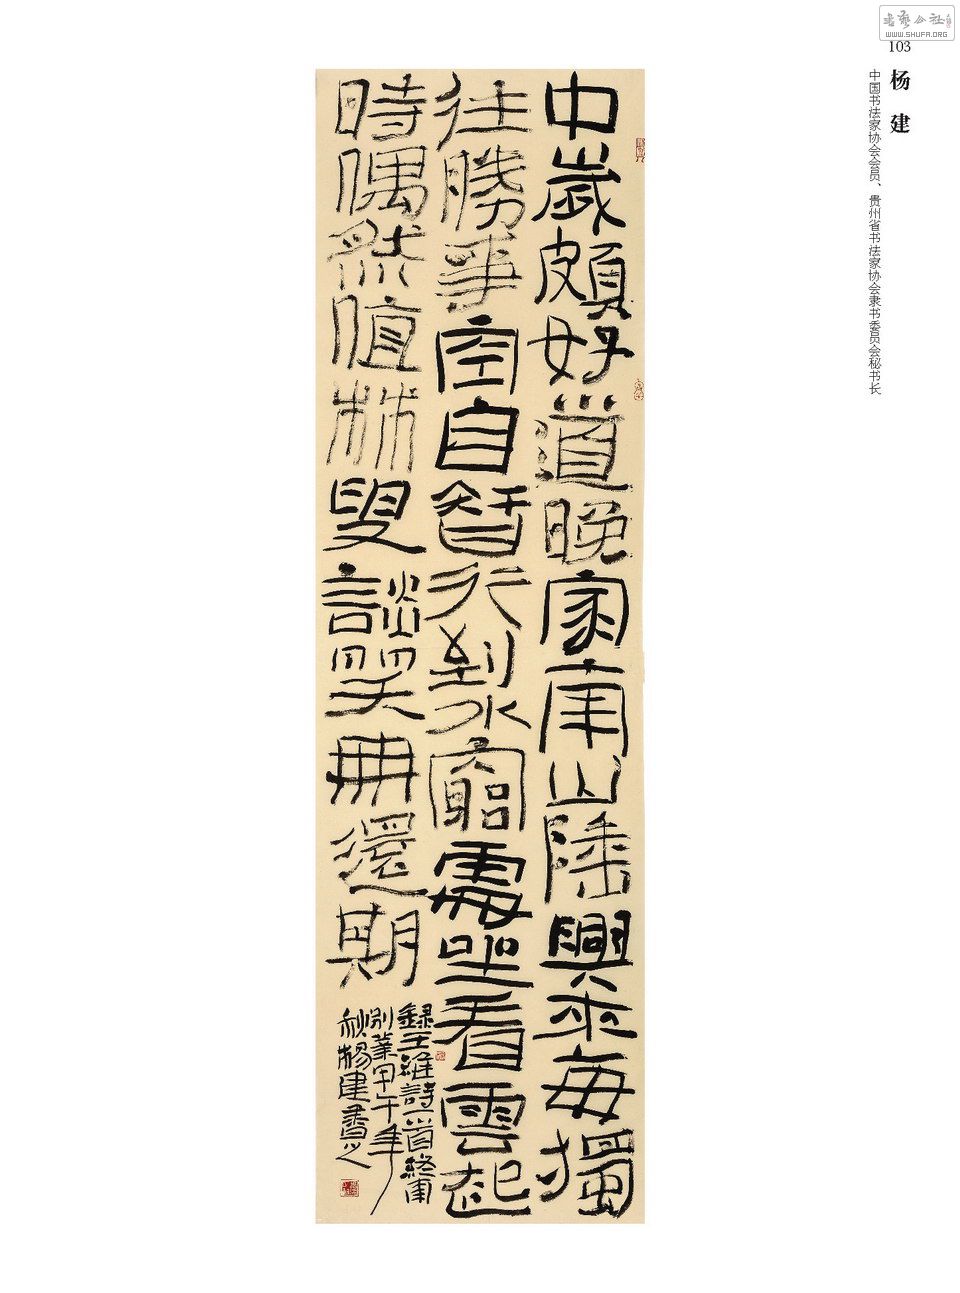 书艺公社
WWW.SHUFA.ORG
103
杨建
中国书法家协会会员、贵州省书法家协会隶书委员会秘书长
中歲頗好道晚家南山陲興來每獨
往勝事空自智行到水窮處坐看雲起
時偶然值林叟談笑無還期
錄王維詩一首終南
別業甲午年
秋楊建書之